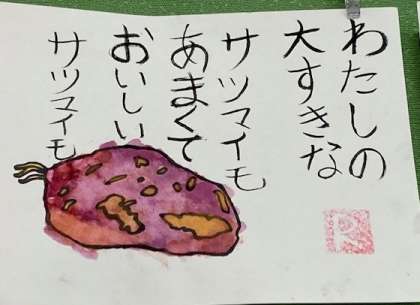 わたしの
大すきな
サツマイモ
あまくて
おいしい
サツマイモ
R